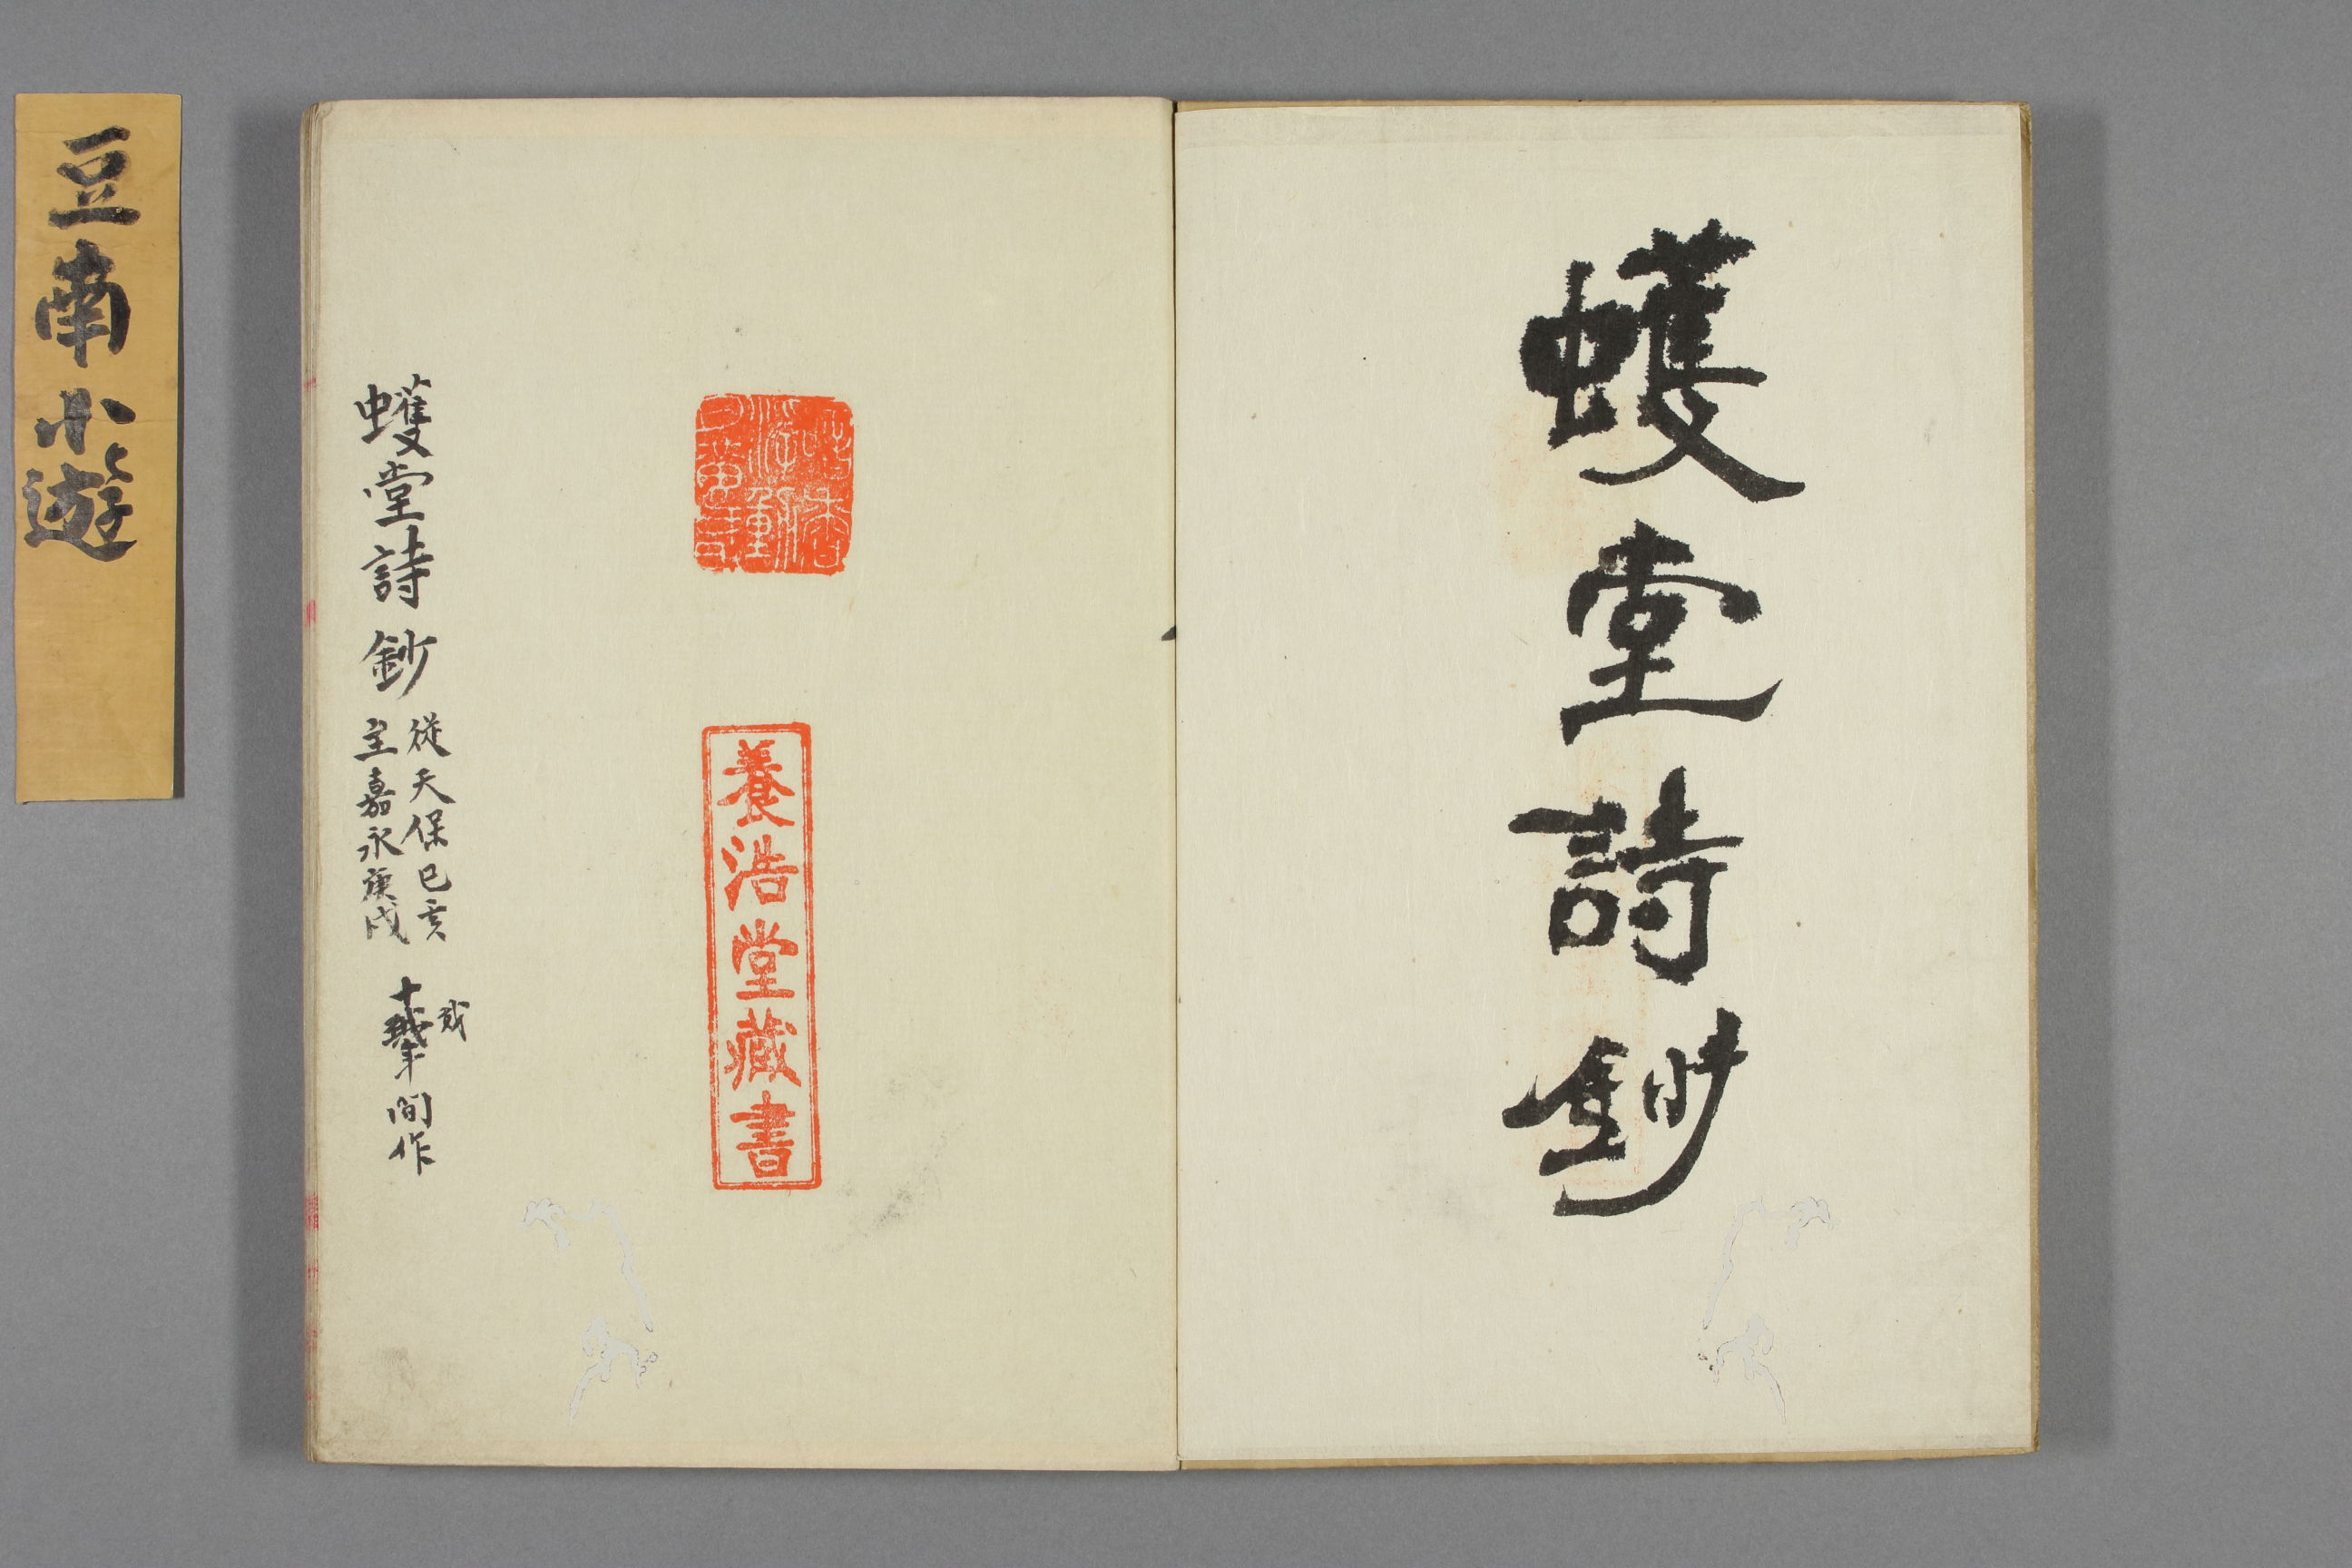 蠖堂詩鈔
養浩堂藏書
蠖堂詩鈔
從天保己亥
至嘉永庚戌
十
年間作
貳
豆南小遊